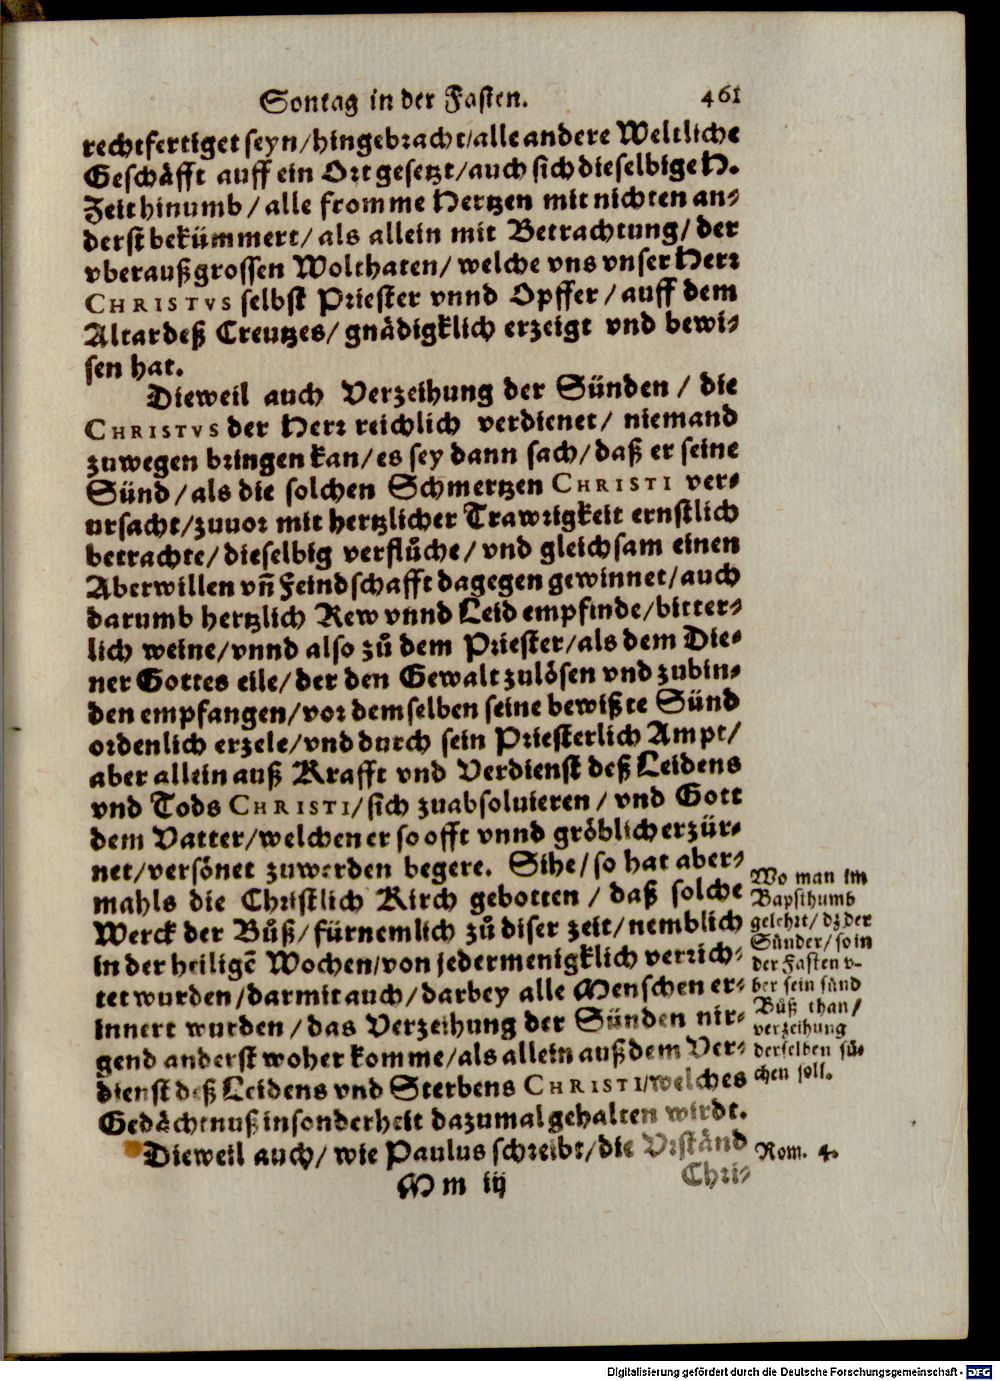 Sontag in der Fasten. 461
rechtfertiget seyn/hingebracht/alle andere Weltliche
Geschäfft auff ein Ort gesetzt/auch sich dieselbige H.
Zeit hinumb/alle fromme Hertzen mit nichten an-
derst bekümmert/als allein mit Betrachtung/der
vberauß grossen Wolthaten/welche vns vnser Herr
CHRISTVS selbst Priester vnnd Opffer/auff dem
Altar deß Creutzes/gnädigklich erzeigt vnd bewi-
sen hat.
Dieweil auch Verzeihung der Sünden/die
CHRISTVS der Herr reichlich verdienet/niemand
zuwegen bringen kan/es sey dann sach/daß er seine
Sünd/als die solchen Schmertzen CHRISTI ver-
ursacht/zuuor mit hertzlicher Trawrigkeit ernstlich
betrachte/dieselbig verflůche/vnd gleichsam einen
Aberwillen vñ Feindschafft dagegen gewinnet/auch
darumb hertzlich Rew vnnd Leid empfinde/bitter-
lich weine/vnnd also zů dem Priester/als dem Die-
ner Gottes eile/der den Gewalt zulösen vnd zubin-
den empfangen/vor demselben seine bewißte Sünd
ordenlich erzele/vnd durch sein Priesterlich Ampt/
aber allein auß Krafft vnd Verdienst deß Leidens
vnd Tods CHRISTI/sich zuabsoluieren/vnd Gott
dem Vatter/welchen er so offt vnnd gröblich erzür-
net/versönet zuwerden begere. Sihe/so hat aber-
mahls die Christlich Kirch gebotten/daß solche
Werck der Bůß/fürnemlich zů diser zeit/nemblich
in der heiligẽ Wochen/von jedermenigklich verrich-
tet wurden/darmit auch/darbey alle Menschen er-
innert wurden/das Verzeihung der Sünden nir-
gend anderst woher komme/als allein auß dem Ver-
dienst deß Leidens vnd Sterbens CHRISTI/welches
Gedächtnuß insonderheit dazumal gehalten wirdt.
Dieweil auch/wie Paulus schreibt/die Vrständ
M m iij Chri-
Wo man im
Bapsthumb
gelehrt/dz der
Sünder/so in
der Fasten v-
ber sein sünd
Bůß than/
verzeihung
derselben sů-
chen soll.
Rom. 4.
Digitalisierung gefördert durch die Deutsche Forschungsgemeinschaft - DFG